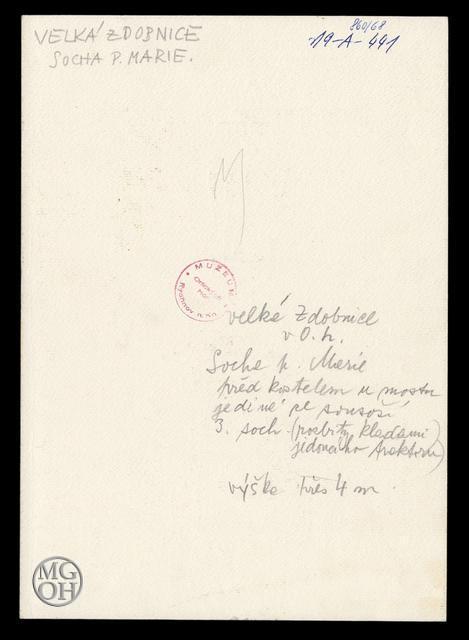 VELKÁ ZDOBNICE
SOCHA P. MARIE.
860/68
19-A-491
M
MUZEUM
Orlických
hor
Rychnov n. Kn.
Velké Zdobnice
v O. h.
Socha p. Marie
před kostelem u mostu
jediné
sousoší
3. soch (rozbity kladami
jedoucího traktoru)
výška přes 4 m.
MG
OH